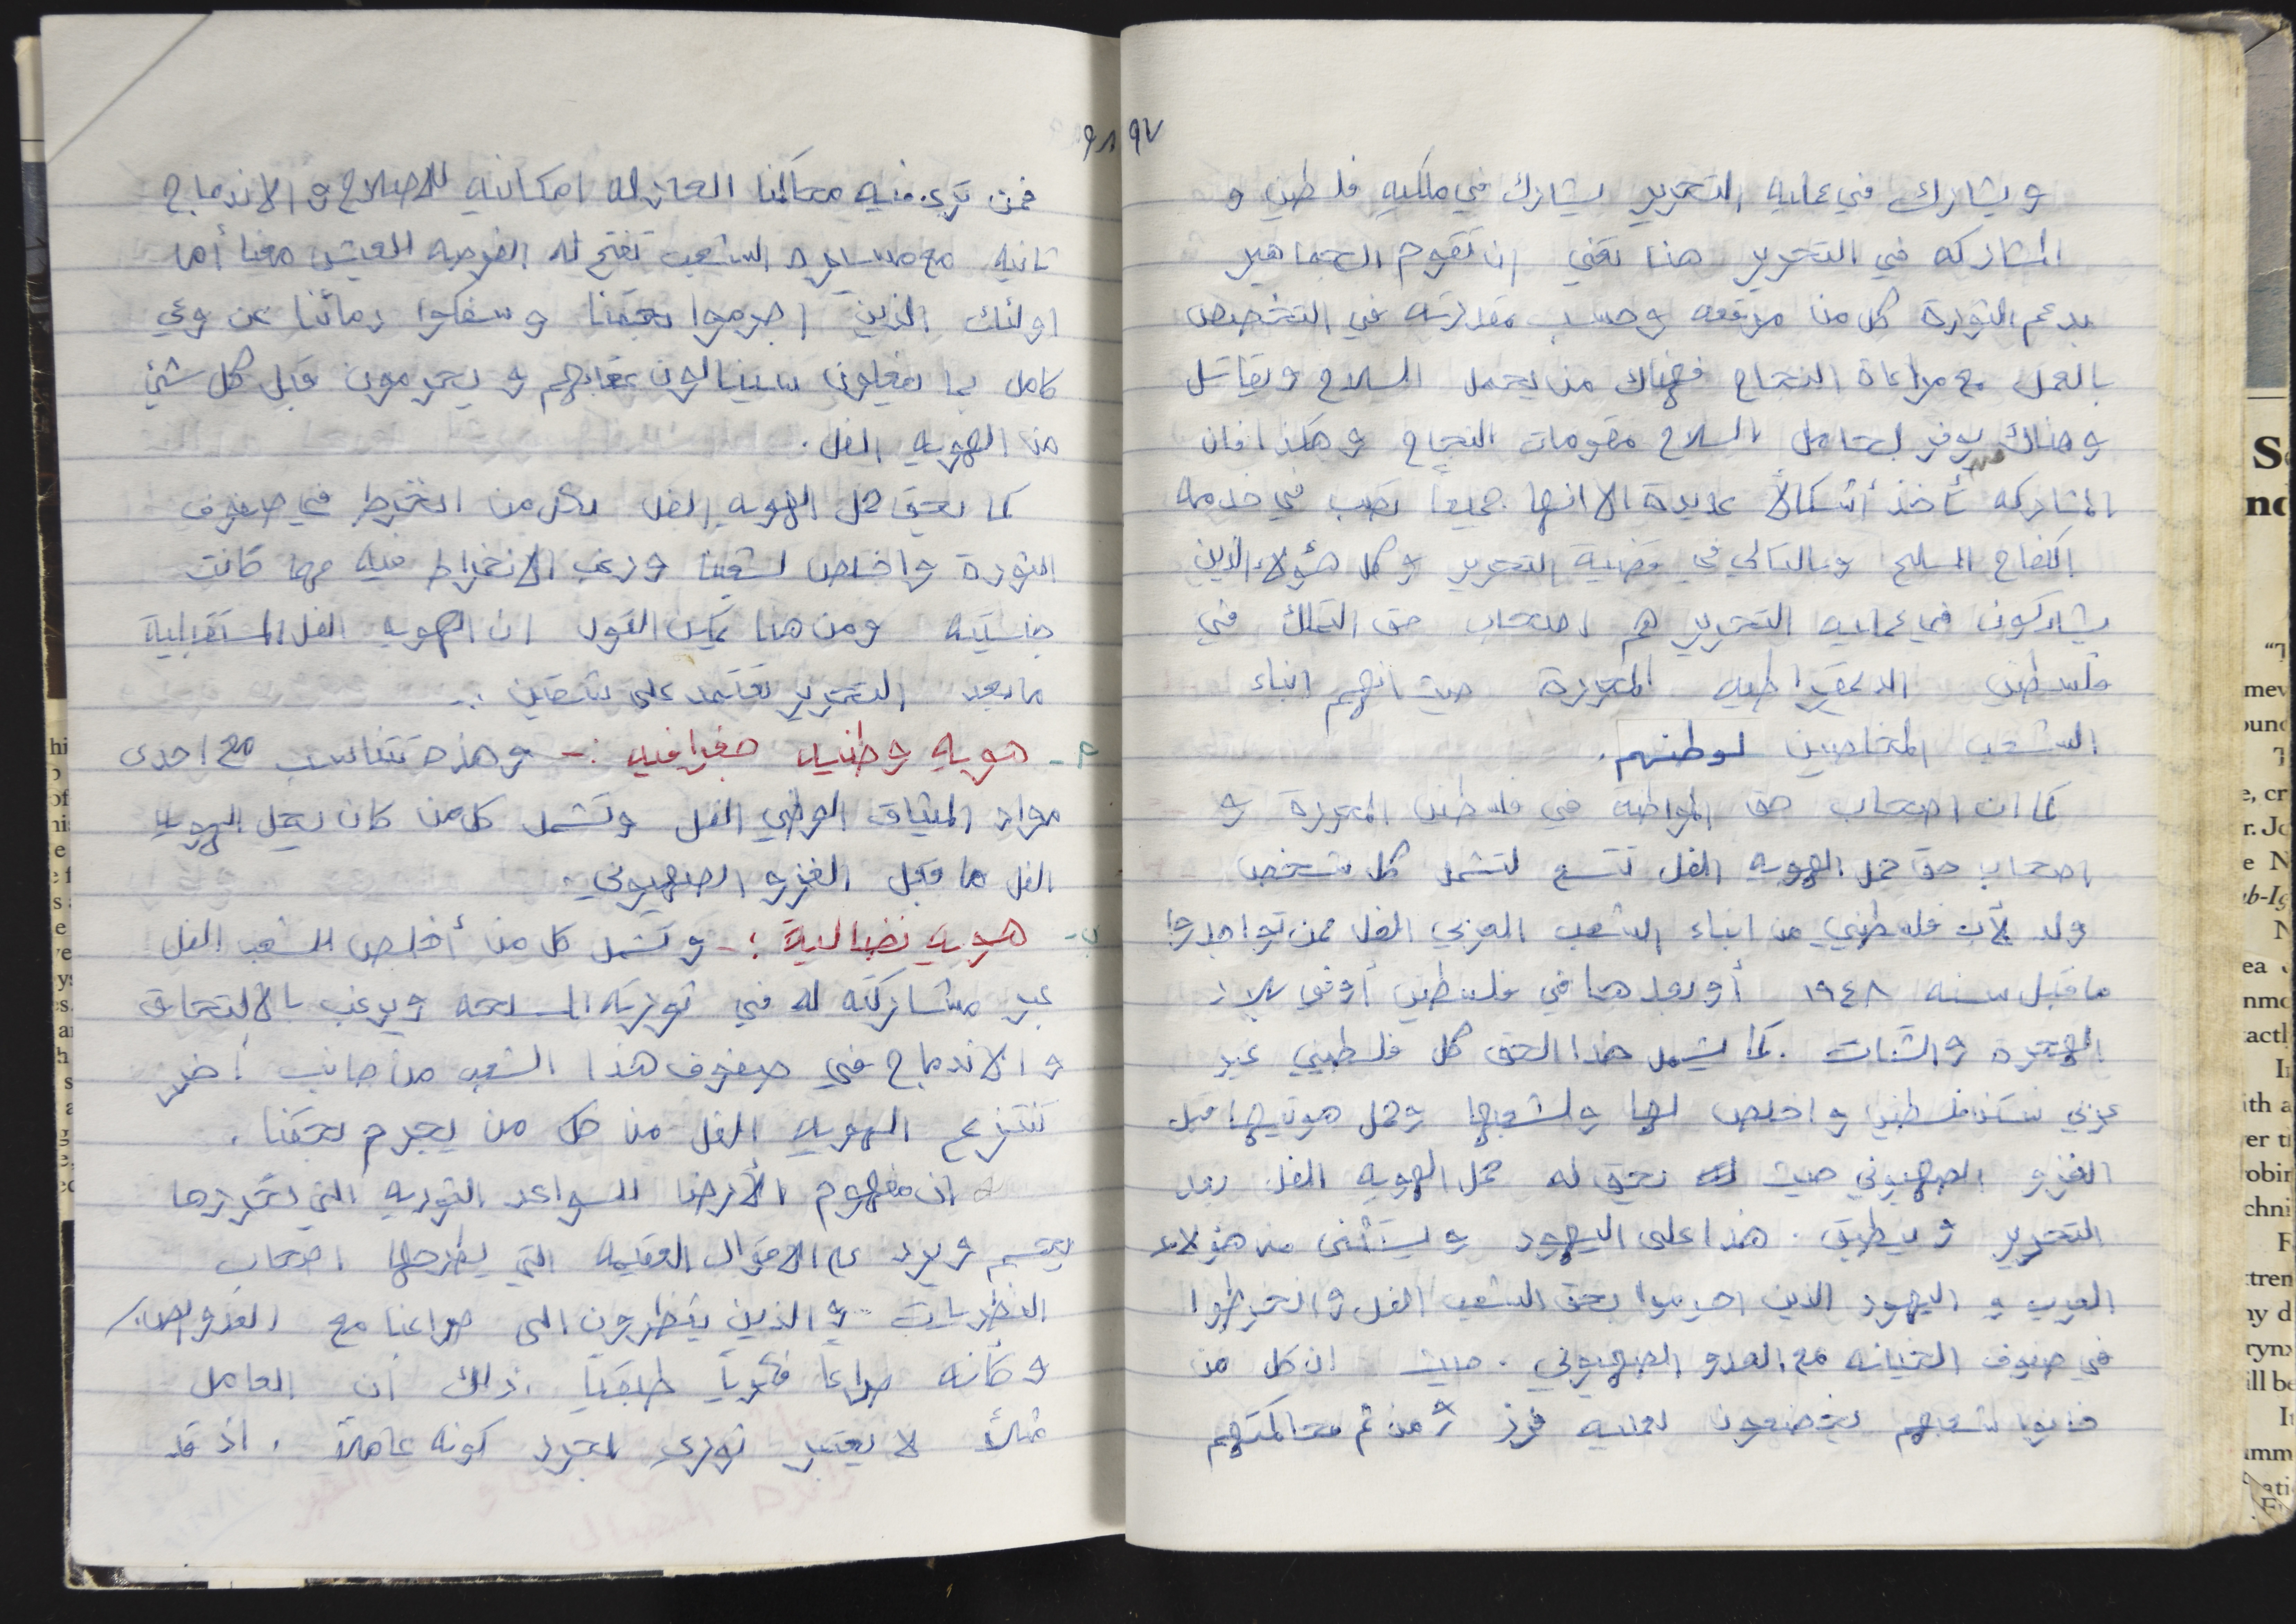 ٩٧
ويشارك في عمليه التحرير يشارك في ملكيه فلسطين و
المشاركه في التحرير هنا تعني ان تقوم الجماهير
بدعم الثورة كل من موقعه وحسب مقدرته في التخصص
بالعمل مع مراعاة النجاح فهناك من يحمل السلاح ويقاتل
وهناك من يوفر لحامل السلاح مقومات النجاح وهكذا فان
المشاركه تأخذ أشكالاً عديدة الا انها جميعاً تصب في خدمة
الكفاح المسلح وبالتالي في قضية التحرير وكل هؤلاء الذين
يشاركون في عمليه التحرير هم اصحاب حق التملك في
فلسطين الديمقراطيه المحررة حيث انهم ابناء
الشعب المخلصين لوطنهم.
كما ان اصحاب حق المواطنة في فلسطين المحررة و
اصحاب حق حمل الهويه الفل تتسع لتشمل كل شخص
ولد لأب فلسطيني من ابناء الشعب العربي الفل ممن تواجدوا
ما قبل سنه ١٩٤٨ أو بعدها في فلسطين أو في بلاد
الهجرة والشتات . كما يشمل هذا الحق كل فلسطيني غير
عربي سكن فلسطين واخلص لها ولشعبها وحمل هويتها قبل
الغزو الصهيوني حيث يحق له حمل الهويه الفل بعد
التحرير وينطبق هذا على اليهود ويستثنى من هؤلاء
العرب و اليهود الذين اجرموا بحق الشعب الفل وانخرطوا
في صفوف الخيانه مع العدو الصهيوني . حيث ان كل من
خانوا شعبهم يخضعون لعمليه فرز ومن ثم محاكمتهم
٩٨
فمن ترى فيه محاكمنا العادله امكانيه للاصلاح و الاندماج
ثانيه مع مسيرة الشعب تفتح له الفرصه للعيش معنا أما
اولئك الذين اجرموا بحقنا وسفكوا دمائنا عن وعي
كامل بما يفعلون سينالون عقابهم ويحرمون قبل كل شيئ
من الهويه الفل .
كما يحق حمل الهويه الفل لكل من انخرط في صفوف
الثورة واخلص لشعبنا ورغب الانخراط فيه مهما كانت
جنسيته ومن هنا يمكن القول ان الهويه الفل المستقبلية
ما بعد التحرير تعتمد على شقين :-
أ- هويه وطنيه جغرافيه :- وهذه تتناسب مع احدى
مواد الميثاق الوطني الفل وتشمل كل من كان يحمل الهويه
الفل ما قبل الغزو الصهيوني .
ب- هويه نضالية :- وتشمل كل من أخلص للشعب الفل
عبر مشاركته له في ثورته المسلحه ويرغب بالالتحاق
والاندماج في صفوف هذا الشعب من جانب أخر
تنتزع الهويه الفل من كل من يجرم بحقنا .
ان مفهوم الأرض للسواعد الثوريه التي تحررها
يحسم ويرد على الاقوال العقيمه التي يطرحها اصحاب
النظريات والذين ينظرون الى صراعنا مع العدو الص/
وكأنه صراعاً فكرياً طبقياً . ذلك أن العامل
مثلاً لا يعتبر ثوري لمجرد كونه عاملاً . اذ قد